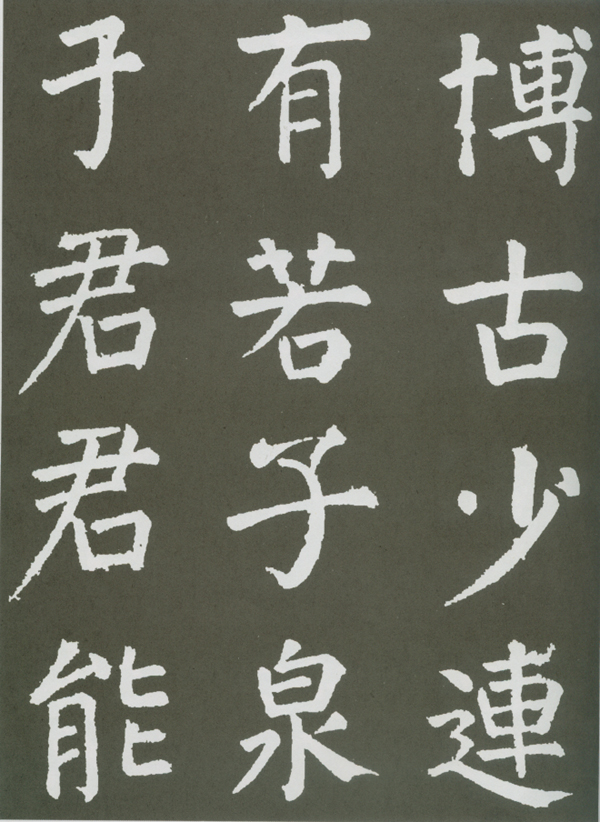 博古少連
有若子泉
子君君能